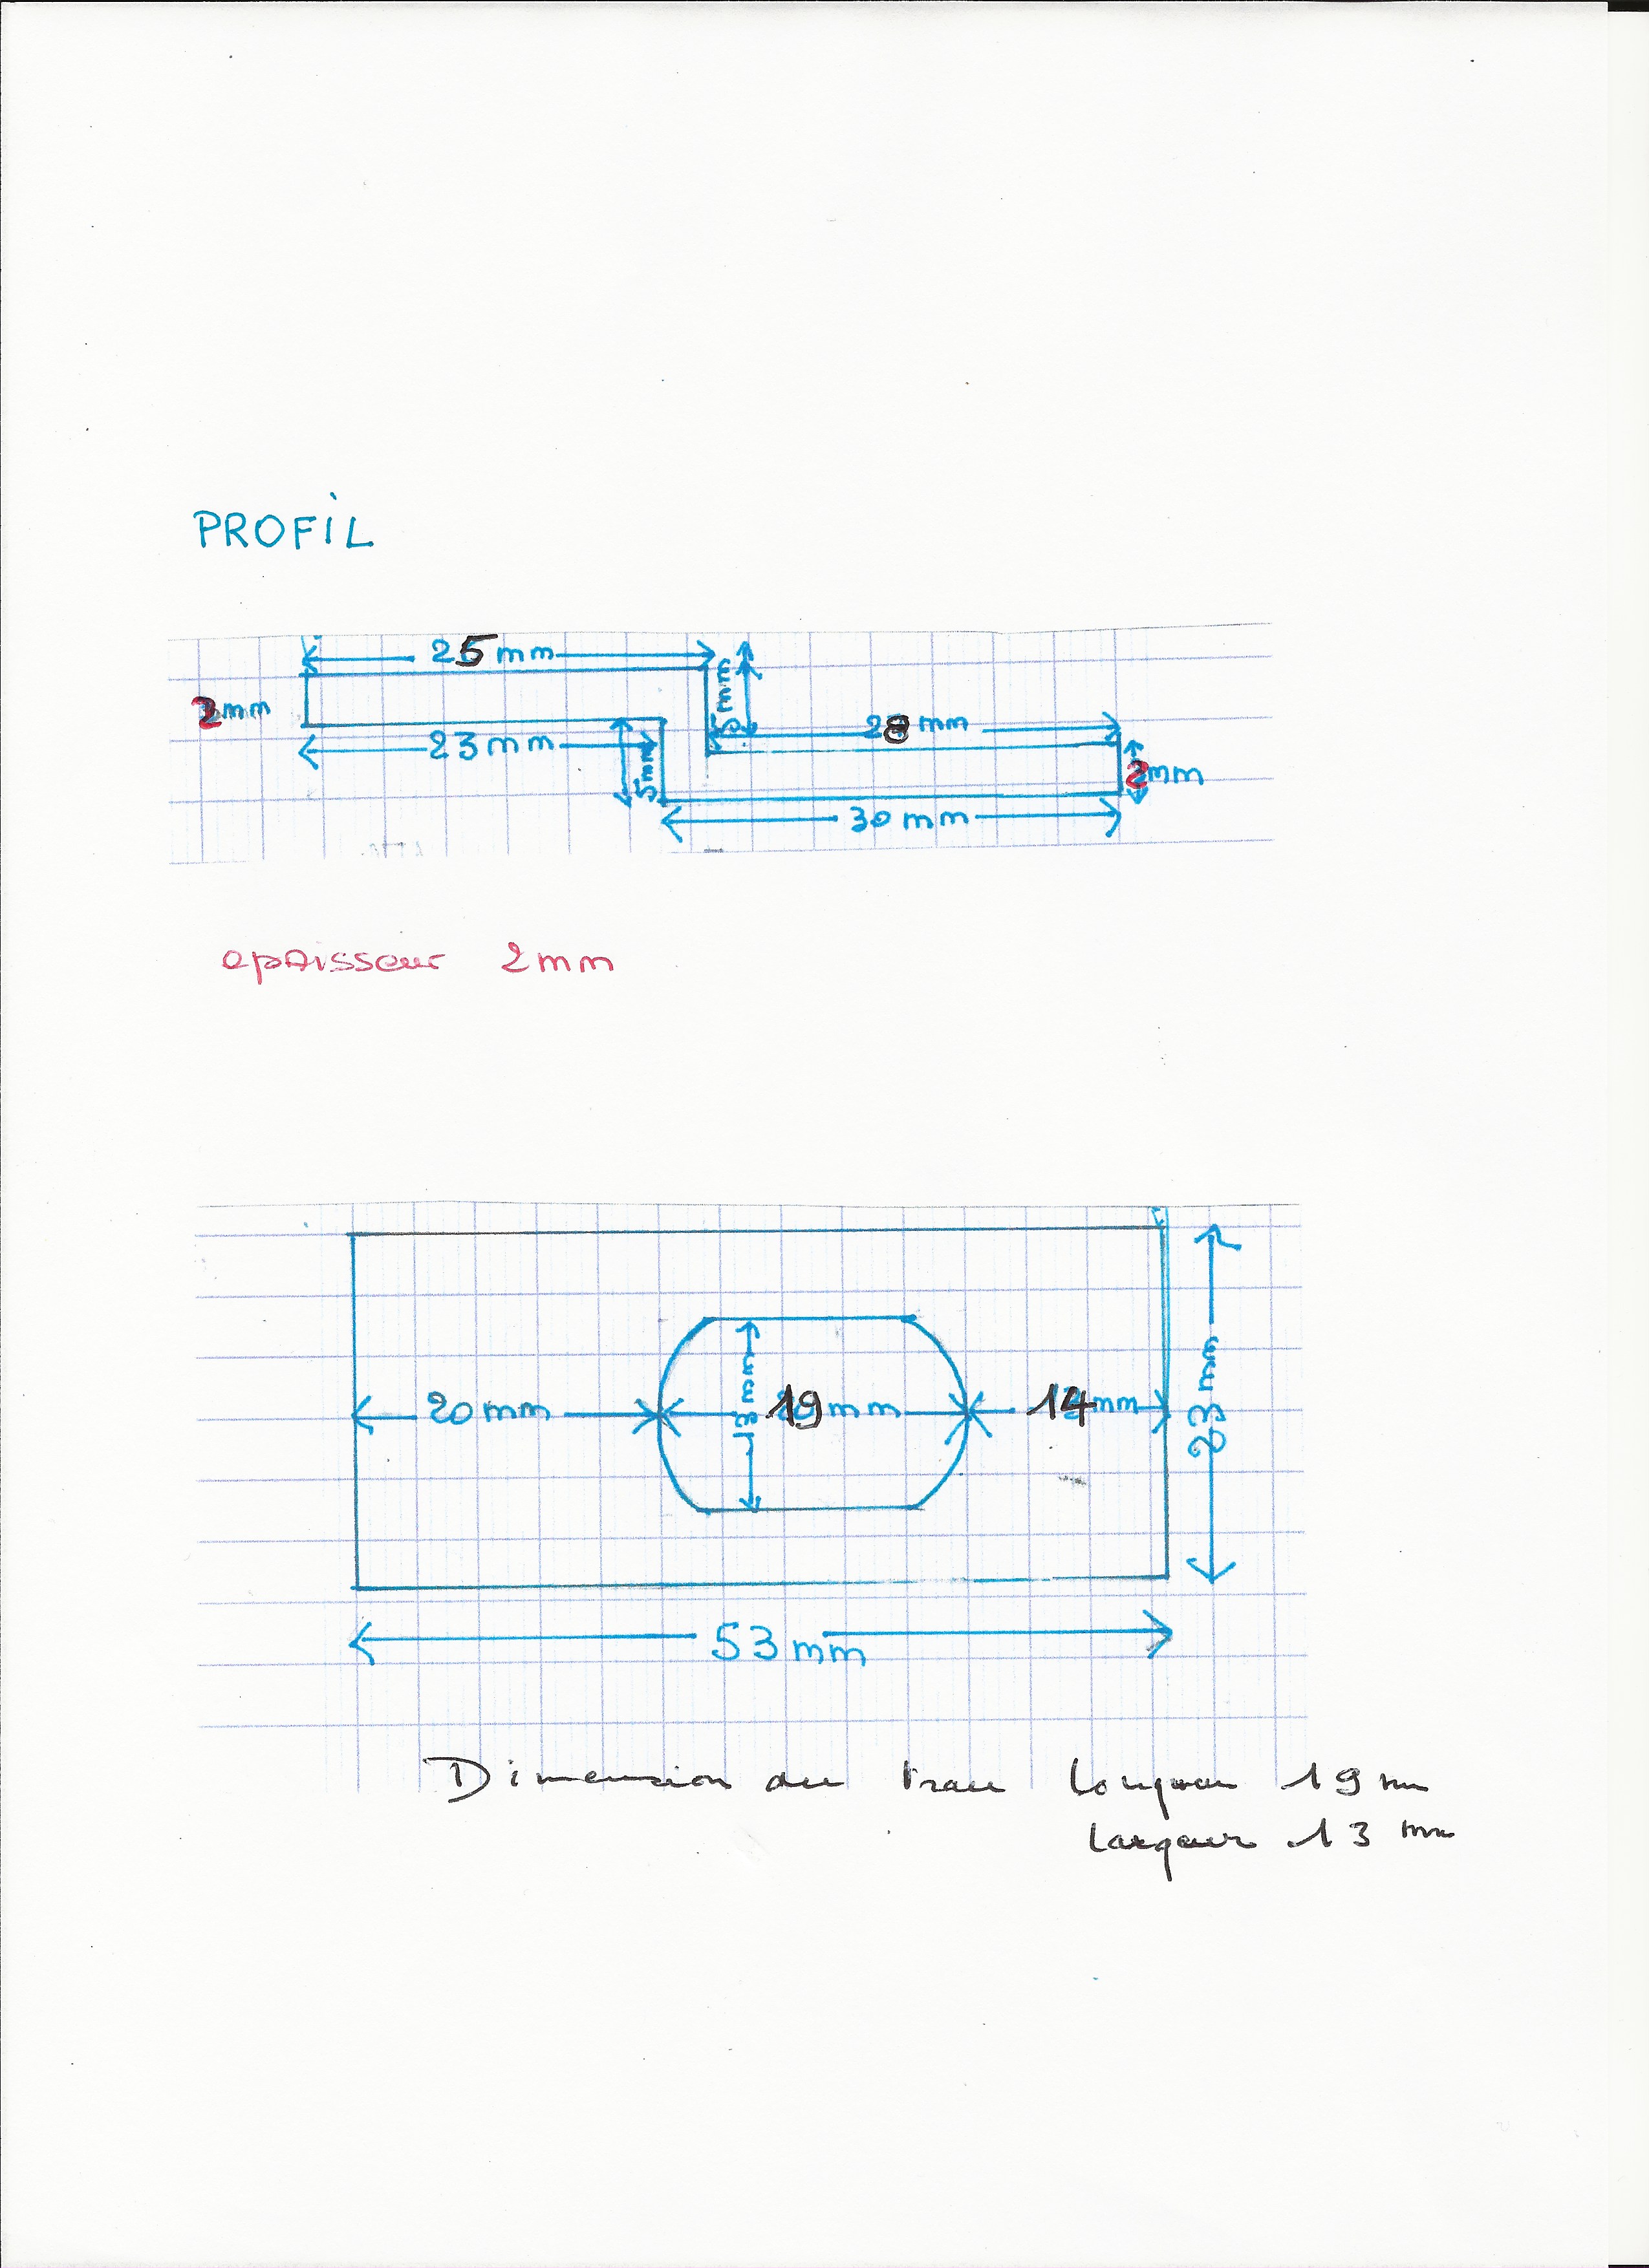 PROFIL
25 mm
5mm
2mm
28 mm
23 mm
5mm
2mm
30 mm
epaisseur 2mm
20 mm
13mm
19mm
14mm
23 mm
53 mm
Dimension du trau longueur 19 mm
largeur 13 mm